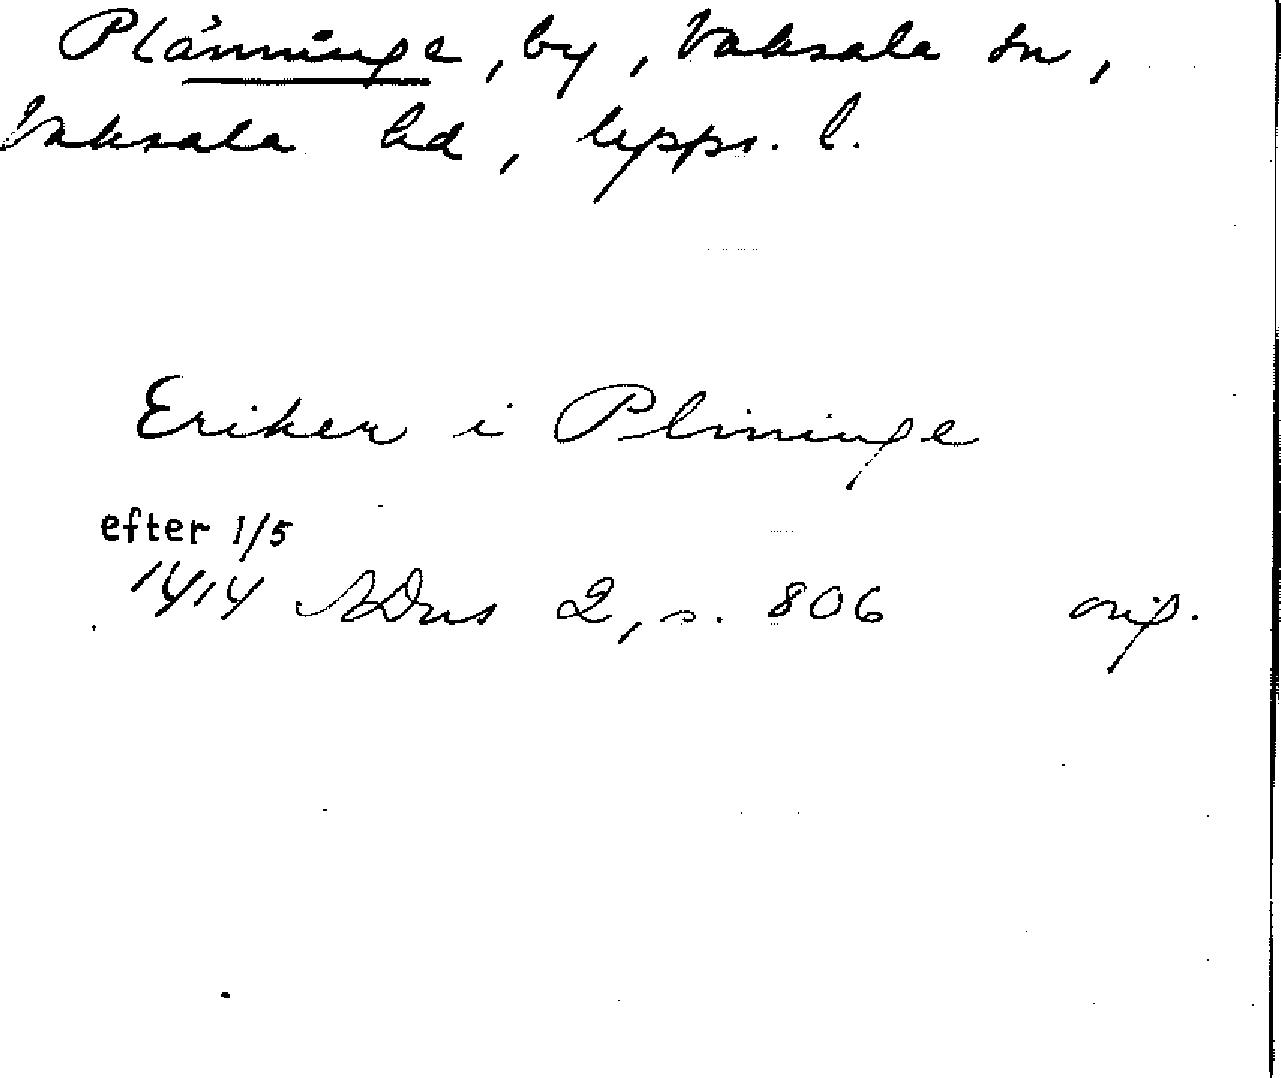 Plänninge, by, Vaksala sn,
Vaksala hd, Upps. l.
Eriker i Plininge
efter 1/5
1414 SDns 2, s. 806 orig.